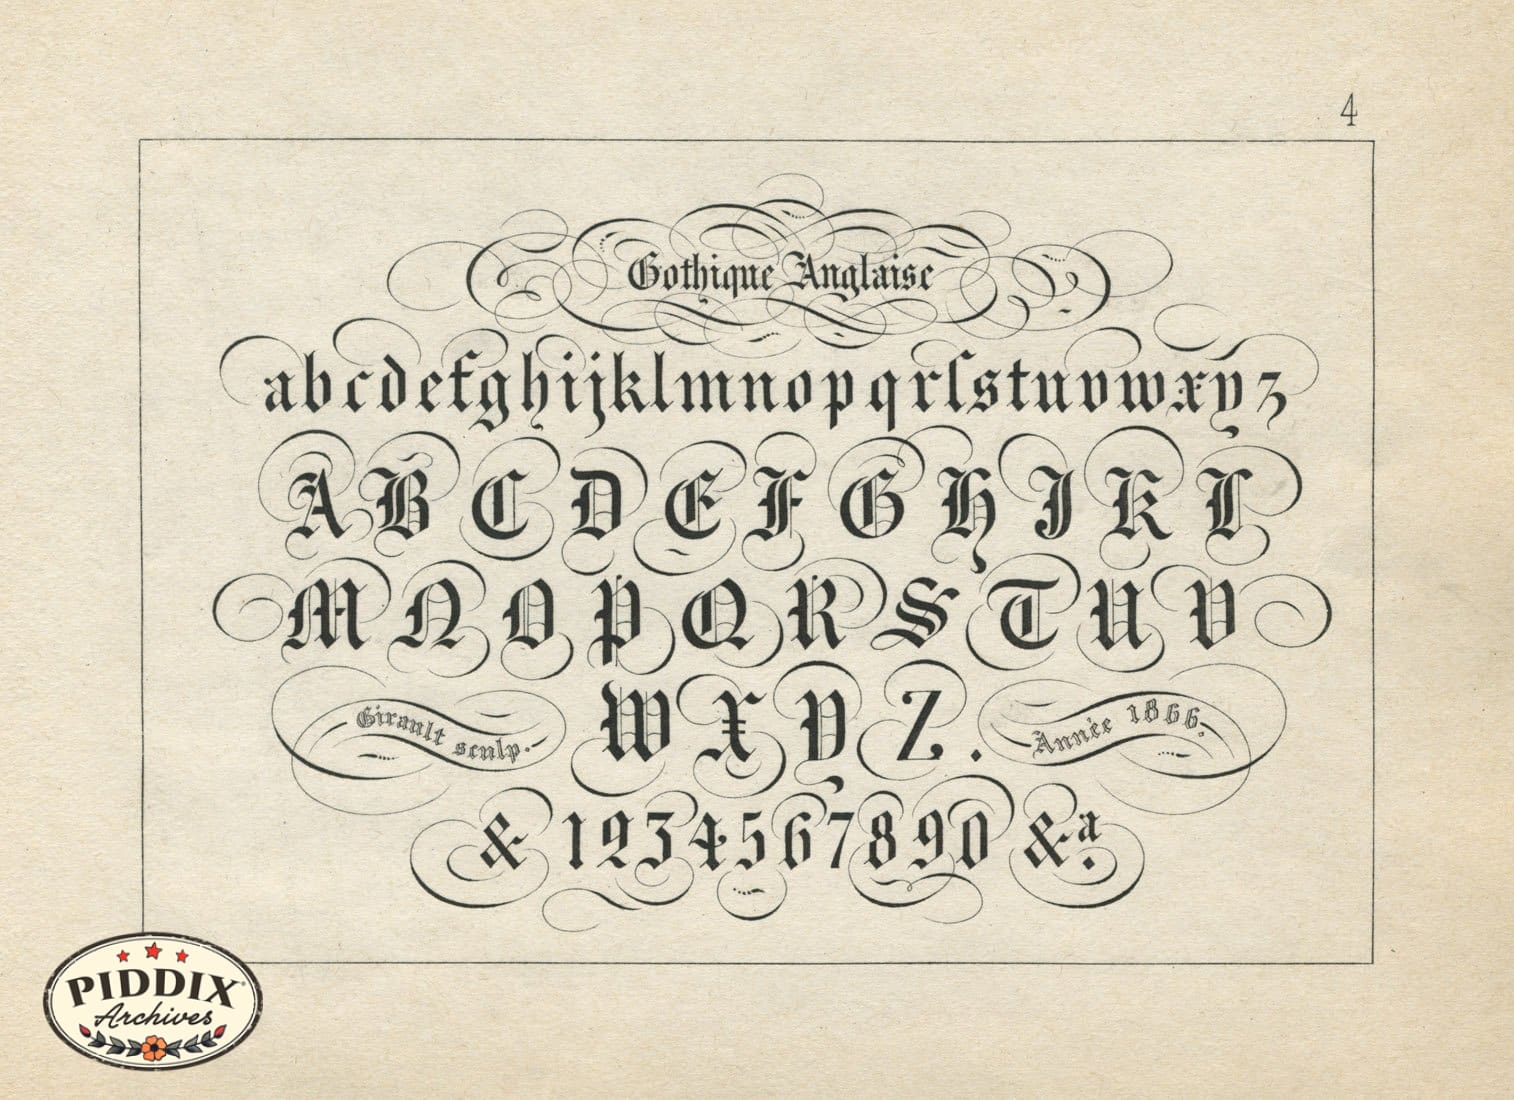 4
Gothique Anglaise
a b c d e f g h i j k l m n o p q r ſ s t u v w x y z
A B C D E F G H I K L
M N O P Q R S T U V
Girault sculp.
W X Y Z.
Année 1866.
& 1 2 3 4 5 6 7 8 9 0 &a.
PIDDIX
Archives